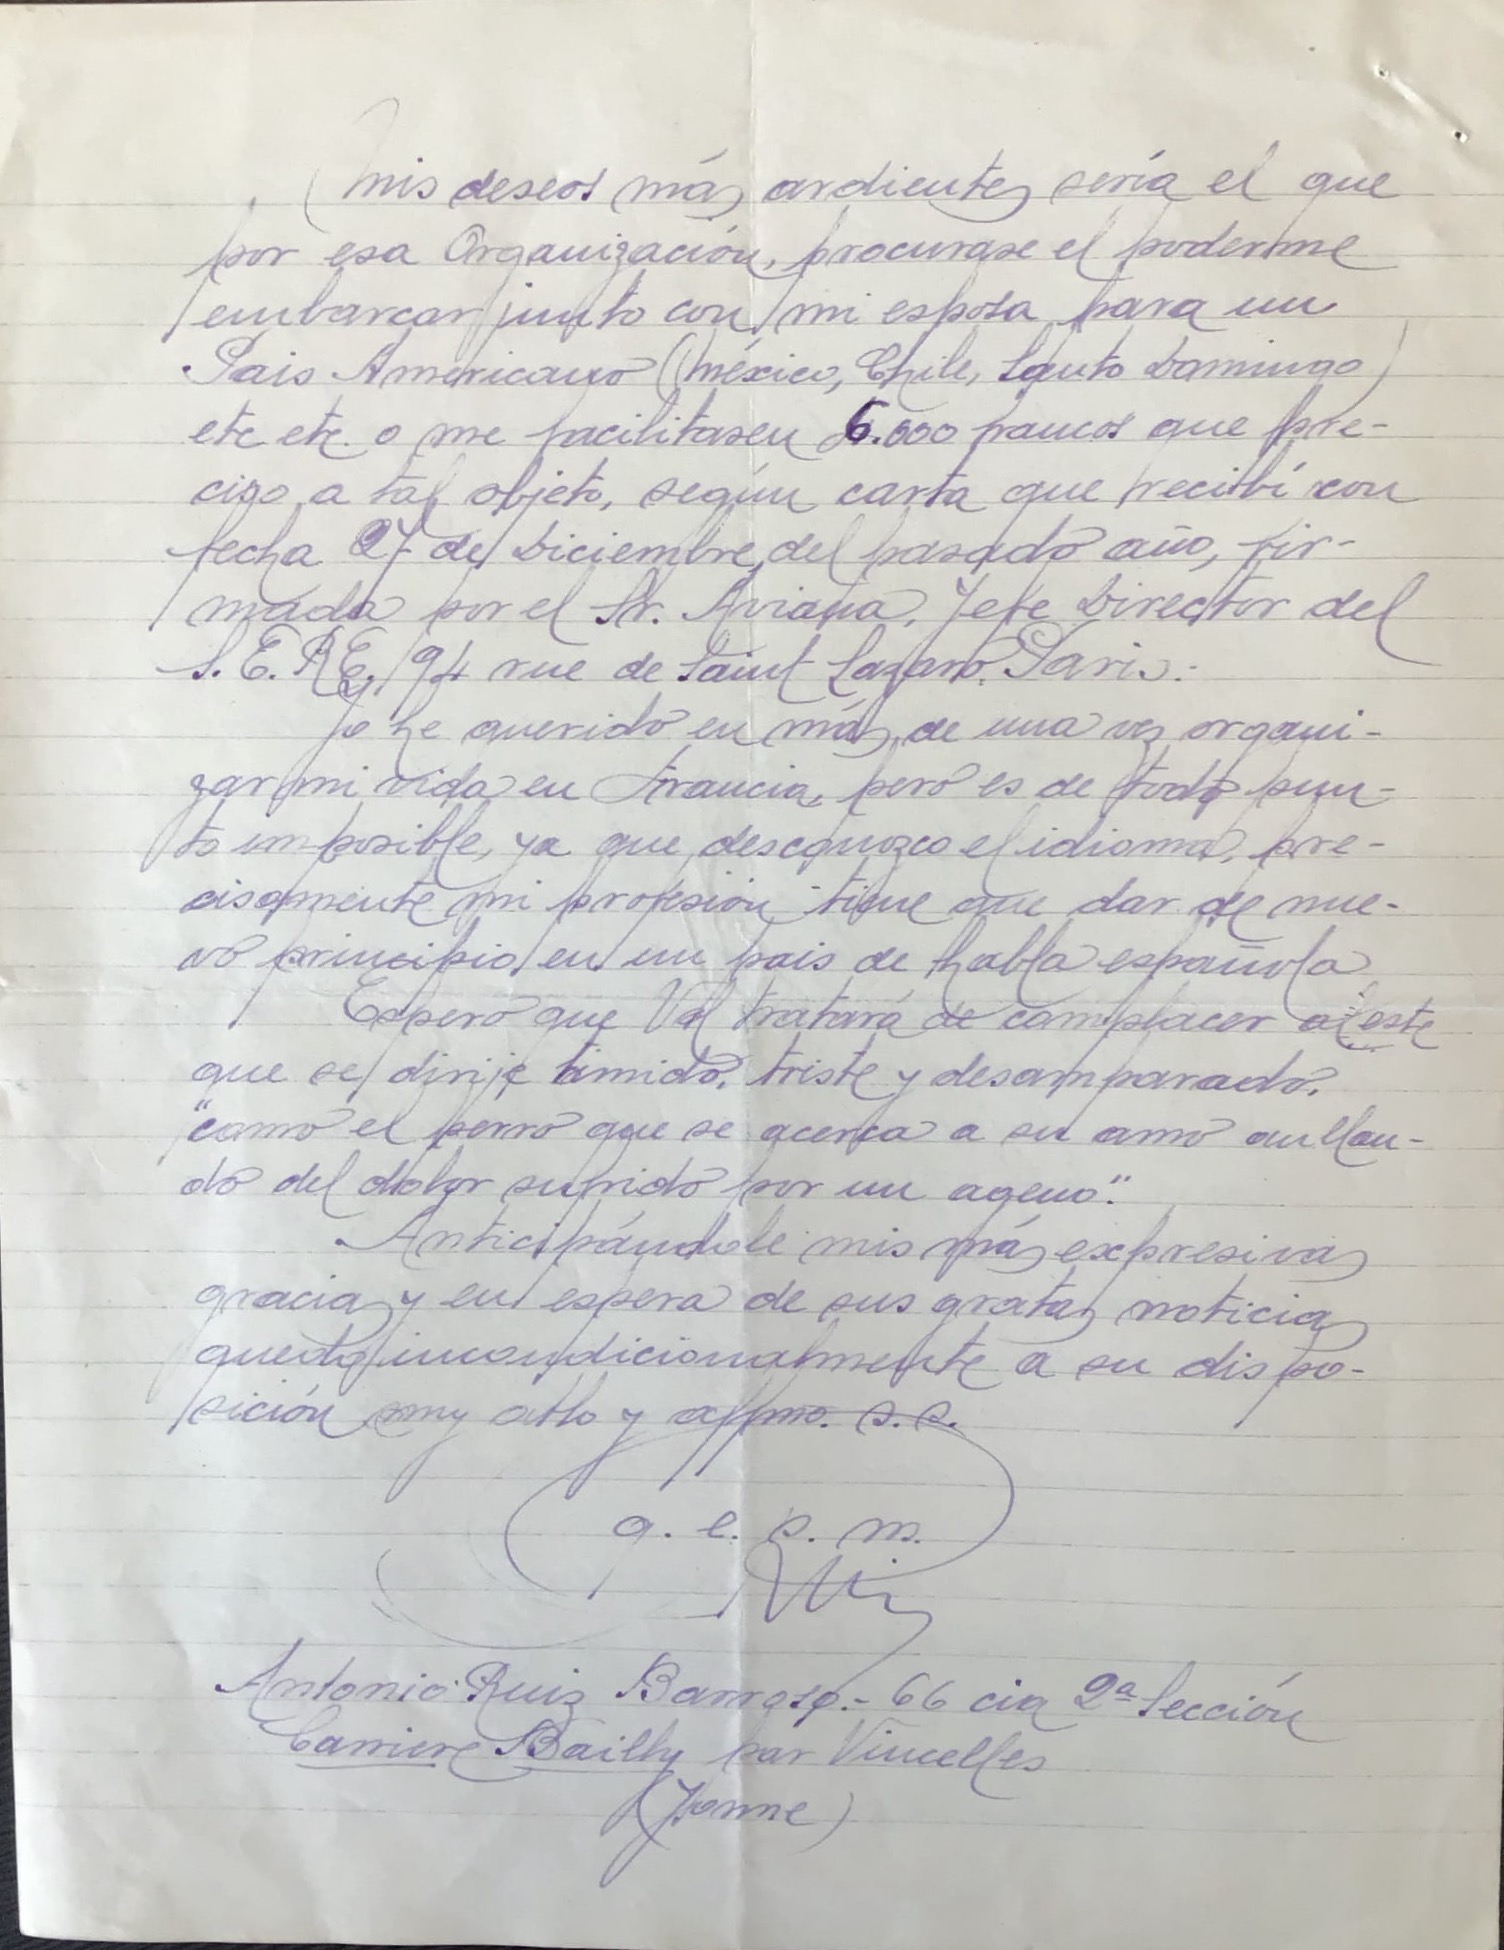 Mis deseos más ardientes sería el que
por esa Organización, procurase el poderme
embarcar junto con mi esposa para un
Pais Americano (México, Chile, Santo Domingo)
etc etc. o me facilitasen 6.000 francos que pre-
ciso a tal objeto, según carta que recibí con
fecha 27 de Diciembre del pasado año, fir-
mada por el Sr. Jefe Director del
S.E.R.E. 94 rue de Saint Lazaro. Paris.-
Yo he querido en más de una vez organi-
zar mi vida en Francia, pero es de todo pun-
to imposible, ya que desconozco el idioma, pre-
cisamente mi profesión tiene que dar de nue-
vo principio en un pais de habla española
Espero que Vd tratará de complacer a este
que se dirije timido, triste y desamparado,
"como el perro que se acerca a su amo aullan-
do del dolor sufrido por un ageno".
Anticipándole mis más expresivas
gracias y en espera de sus gratas noticias
queda incondicionalmente a su dispo-
sición muy atto y affmo. s. s.
q. e. s. m.
Antonio Ruiz Barroso.- 66 cia 2ª Sección
Carriere Bailly par Vincelles
(Yonne)